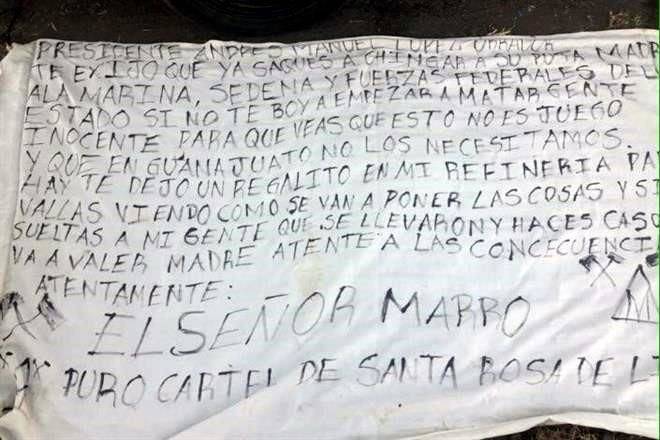 PRESIDENTE ANDRES MANUEL LOPEZ OBRADOR
TE EXIJO QUE YA SAQUES A CHINGAR A SU PUTA MADRE
A LA MARINA, SEDENA Y FUERZAS FEDERALES DEL
ESTADO SI NO TE BOY A EMPEZAR A MATAR GENTE
INOCENTE PARA QUE VEAS QUE ESTO NO ES JUEGO
Y QUE EN GUANAJUATO NO LOS NECESITAMOS.
HAY TE DEJO UN REGALITO EN MI REFINERIA PA
VALLAS VIENDO COMO SE VAN A PONER LAS COSAS Y SI
SUELTAS A MI GENTE QUE SE LLEVARON Y HACES CASO
VA A VALER MADRE ATENTE A LAS CONCECUENCI
ATENTAMENTE:
EL SEÑOR MARRO
PURO CARTEL DE SANTA ROSA DE LI